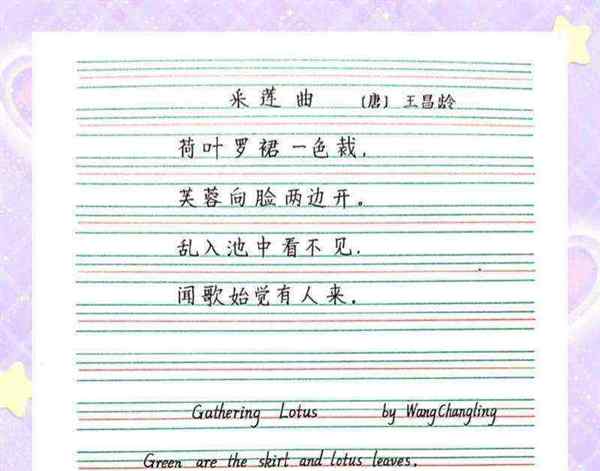 采莲曲 〔唐〕王昌龄
荷叶罗裙一色裁，
芙蓉向脸两边开。
乱入池中看不见，
闻歌始觉有人来。
Gathering Lotus by Wang Changling
Green are the skirt and lotus leaves,